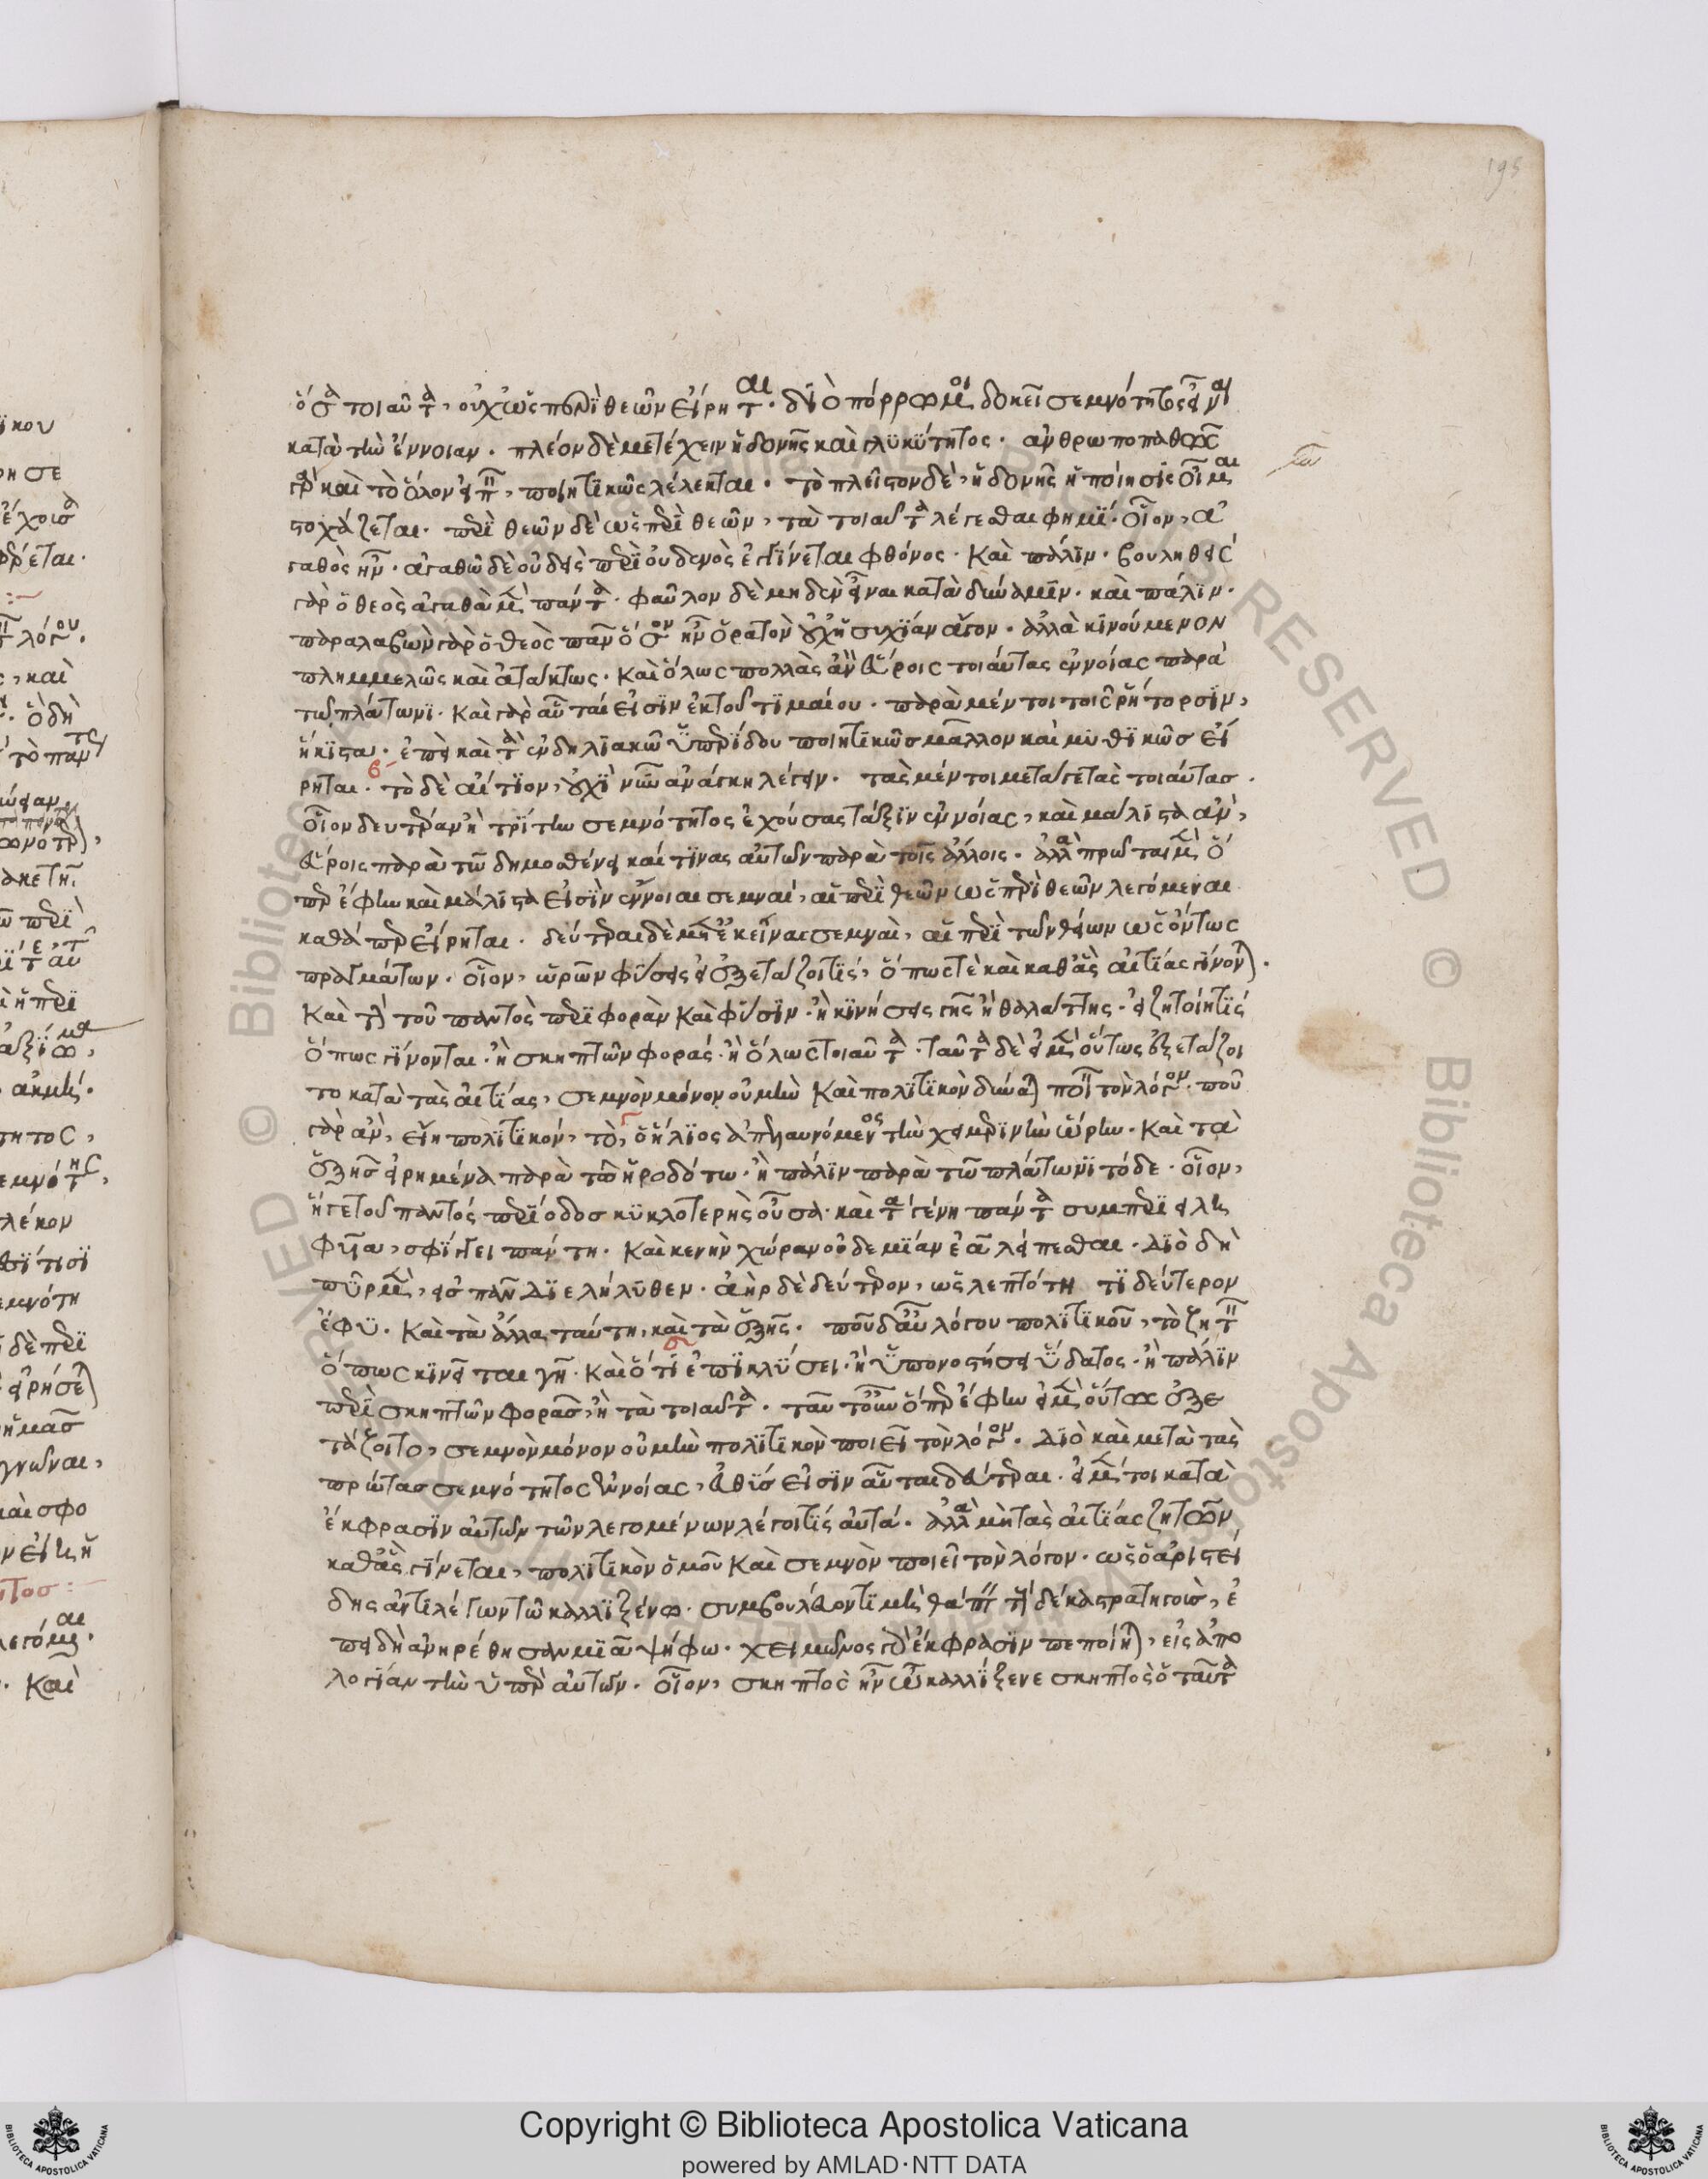 195
ὅσα τοιαῦτα, οὐχ ὡς περὶ θεῶν εἴρηται. διὸ πόρρω μοι δοκεῖ σεμνότητος εἶναι
κατὰ τὴν ἔννοιαν. πλέον δὲ μετέχειν ἡδονῆς καὶ γλυκύτητος. ἀνθρωποπαθῶς
γὰρ καὶ τὸ ὅλον εἰπεῖν, ποιητικῶς λέλεκται. τὸ πλεῖστον δὲ, ἡδονῆς ἡ ποίησις οἶμαι
στοχάζεται. περὶ θεῶν δὲ ὡς περὶ θεῶν, τὰ τοιαῦτα λέγεσθαι φημί. οἷον, ἀ
γαθὸς ἦν. ἀγαθῷ δὲ οὐδεὶς περὶ οὐδενὸς ἐγγίνεται φθόνος. Καὶ πάλιν. βουληθεὶς
γὰρ ὁ θεὸς ἀγαθὰ μὲν πάντα. φαῦλον δὲ μηδὲν εἶναι κατὰ δύναμιν. καὶ πάλιν.
παραλαβὼν γὰρ ὁ θεὸς πᾶν ὅσον ἦν ὁρατὸν οὐχ ἡσυχίαν ἄγον. ἀλλὰ κινούμενον
πλημμελῶς καὶ ἀτάκτως. Καὶ ὅλως πολλὰς ἂν εὕροις τοιαύτας ἐννοίας παρὰ
τῷ πλάτωνι. Καὶ γὰρ αὗται εἰσὶν ἐκ τοῦ τιμαίου. παρὰ μέντοι τοῖς ῥήτορσιν,
ἥκιστα. ἐπεὶ καὶ τὰ ἐν δηλιακῷ ὑπερίδου ποιητικῶς μᾶλλον καὶ μυθικῶς εἴ
ρηται. τὸ δὲ αἴτιον, οὐχὶ νῦν ἀνάγκη λέγειν. τὰς μέντοι μετά γε τὰς τοιαύτας.
οἷον δευτέραν ἢ τρίτην σεμνότητος ἐχούσας τάξιν ἐννοίας, καὶ μάλιστα ἂν,
εὕροις παρὰ τῷ δημοσθένει καί τινας αὐτῶν παρὰ τοῖς ἄλλοις. ἀλλὰ πρῶται μὲν ὅ
περ ἔφην καὶ μάλιστα εἰσὶν ἔννοιαι σεμναί, αἱ περὶ θεῶν ὡς περὶ θεῶν λεγόμεναι
καθάπερ εἴρηται. δεύτεραι δὲ μετ' ἐκείνας σεμναὶ, αἱ περὶ τῶν θείων ὡς ὄντως
πραγμάτων. οἷον, ὡρῶν φύσεις εἰ ἐξετάζοι τίς, ὅπως τὲ καὶ καθ' ἃς αἰτίας γίνονται.
Καὶ τὴν τοῦ παντὸς περιφορὰν καὶ φύσιν. ἢ κινήσεις γῆς ἢ θαλάττης. εἰ ζητοίη τίς
ὅπως γίνονται. ἢ σκηπτῶν φοράς. ἢ ὅλως τοιαῦτα. ταῦτα δὲ εἰ μὲν οὕτως ἐξετάζοι
το κατὰ τὰς αἰτίας, σεμνὸν μόνον οὐ μὴν καὶ πολιτικὸν δύναται ποιεῖν τὸν λόγον. ποῦ
γὰρ ἂν, εἴη πολιτικόν, τὸ, ὁ ἥλιος ἀπελαυνόμενος τὴν χειμερινὴν ὥρην. Καὶ τὰ
ἑξῆς εἰρημένα παρὰ τῷ ἡροδότω. ἢ πάλιν παρὰ τῷ πλάτωνι τόδε. οἷον,
ἥ γε τοῦ παντός περίοδος κυκλοτερὴς οὖσα. καὶ τὰ γένη πάντα συμπεριειλη
φυῖα, σφίγγει πάντη. Καὶ κενὴν χώραν οὐδεμίαν ἐᾷ λείπεσθαι. Διὸ δὴ
πῦρ μὲν, εἰς πᾶν διελήλυθεν. ἀὴρ δὲ δεύτερον, ὡς λεπτότητι δεύτερον
ἔφυ. Καὶ τὰ ἄλλα ταύτη, καὶ τὰ ἑξῆς. ποῦ δ' ἂν λόγου πολιτικοῦ, τὸ ζητεῖν
ὅπως κινεῖται γῆ. Καὶ ὅτι ἐπικλύσει. ἢ ὑπονοστήσει ὕδατος. ἢ πάλιν
περὶ σκηπτῶν φορᾶς, ἢ τὰ τοιαῦτα. ταῦτα τοίνυν ὅπερ ἔφην εἰ μὲν οὕτως ἐξε
τάζοιτο, σεμνὸν μόνον οὐ μὴν πολιτικὸν ποιεῖ τὸν λόγον. Διὸ καὶ μετὰ τὰς
πρώτας σεμνότητος ἐννοίας, εὐθύς εἰσὶν αὗται δεύτεραι. εἰ μέντοι κατὰ
ἔκφρασιν αὐτῶν τῶν λεγομένων λέγοι τίς αὐτά. ἀλλὰ μὴ τὰς αἰτίας ζητῶν
καθ' ἃς γίνεται, πολιτικὸν ὁμοῦ καὶ σεμνὸν ποιεῖ τὸν λόγον. ὡς ὁ ἀριστεί
δης ἀντιλέγων τῷ καλλιξένω. συμβουλεύοντι μὴ θάπτειν τοὺς δέκα στρατηγοὺς, ἐ
πειδὴ ἀνηρέθησαν μιᾷ ψήφω. χειμῶνος γὰρ ἔκφρασιν πεποίηται, εἰς ἀπο
λογίαν τὴν ὑπὲρ αὐτῶν. οἷον, σκηπτὸς ἦν ὦ καλλίξενε σκηπτὸς ὁ ταῦτα
Copyright © Biblioteca Apostolica Vaticana
powered by AMLAD·NTT DATA